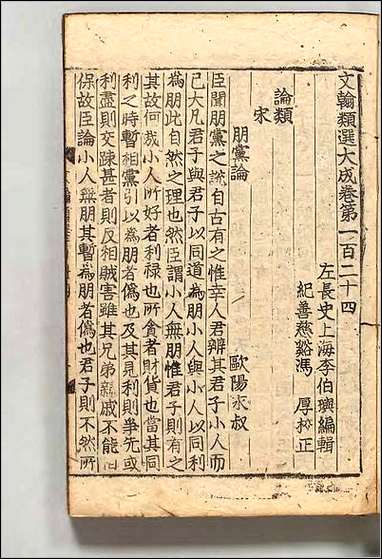 文翰類選大成卷第一百二十四
左長史上海李伯璵編輯
紀善慈谿馮　厚校正
論類
宋
朋黨論　歐陽永叔
臣聞朋黨之說自古有之惟幸人君辨其君子小人而
已大凡君子與君子以同道為朋小人與小人以同利
為朋此自然之理也然臣謂小人無朋惟君子則有之
其故何哉小人所好者利祿也所貪者財貨也當其同
利之時暫相黨引以為朋者偽也及其見利而爭先或
利盡則交踈甚者則反相賊害雖其兄弟親戚不能相
保故臣論小人無朋其暫為朋者偽也君子則不然所